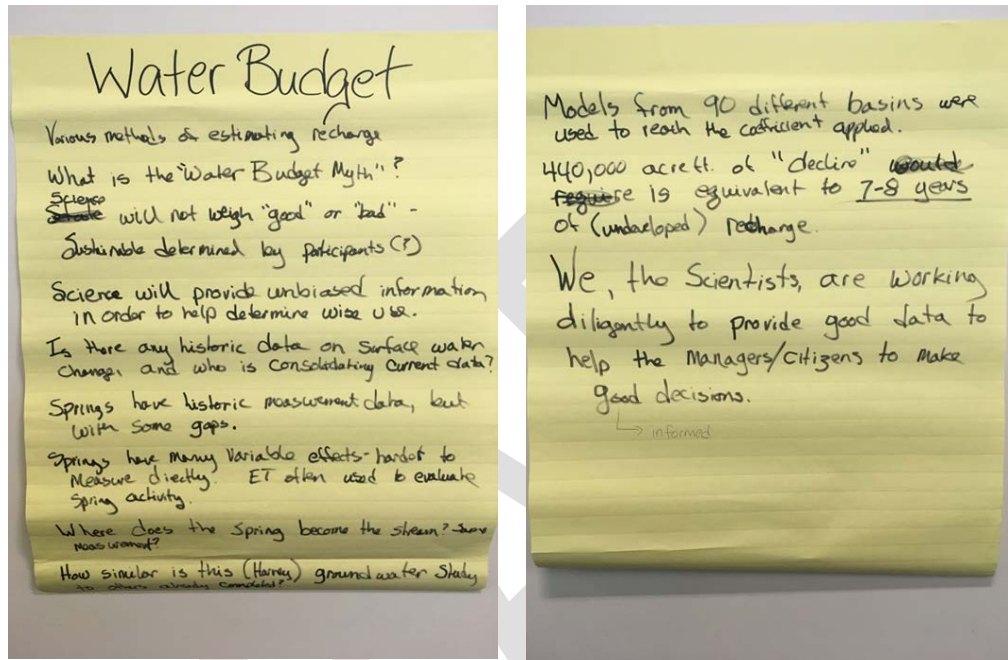 Water Budget
Various methods of estimating recharge
What is the "Water Budget Myth"?
Science
will not weigh "good" or "bad" -
Sustainable determined by participants (?)
Science will provide unbiased information
in order to help determine wise use.
Is there any historic data on surface water
change, and who is consolidating current data?
Springs have historic measurement data, but
with some gaps.
Springs have many variable effects - harder to
measure directly. ET often used to evaluate
spring activity.
Where does the spring become the stream? - Same
measurement?
How similar is this (Harney) groundwater study
to others already completed?
Models from 90 different basins were
used to reach the coefficient applied.
440,000 acre ft. of "decline" would
require is equivalent to 7-8 years
of (undeveloped) recharge.
We, the Scientists, are working
diligently to provide good data to
help the Managers/Citizens to make
good decisions.
informed